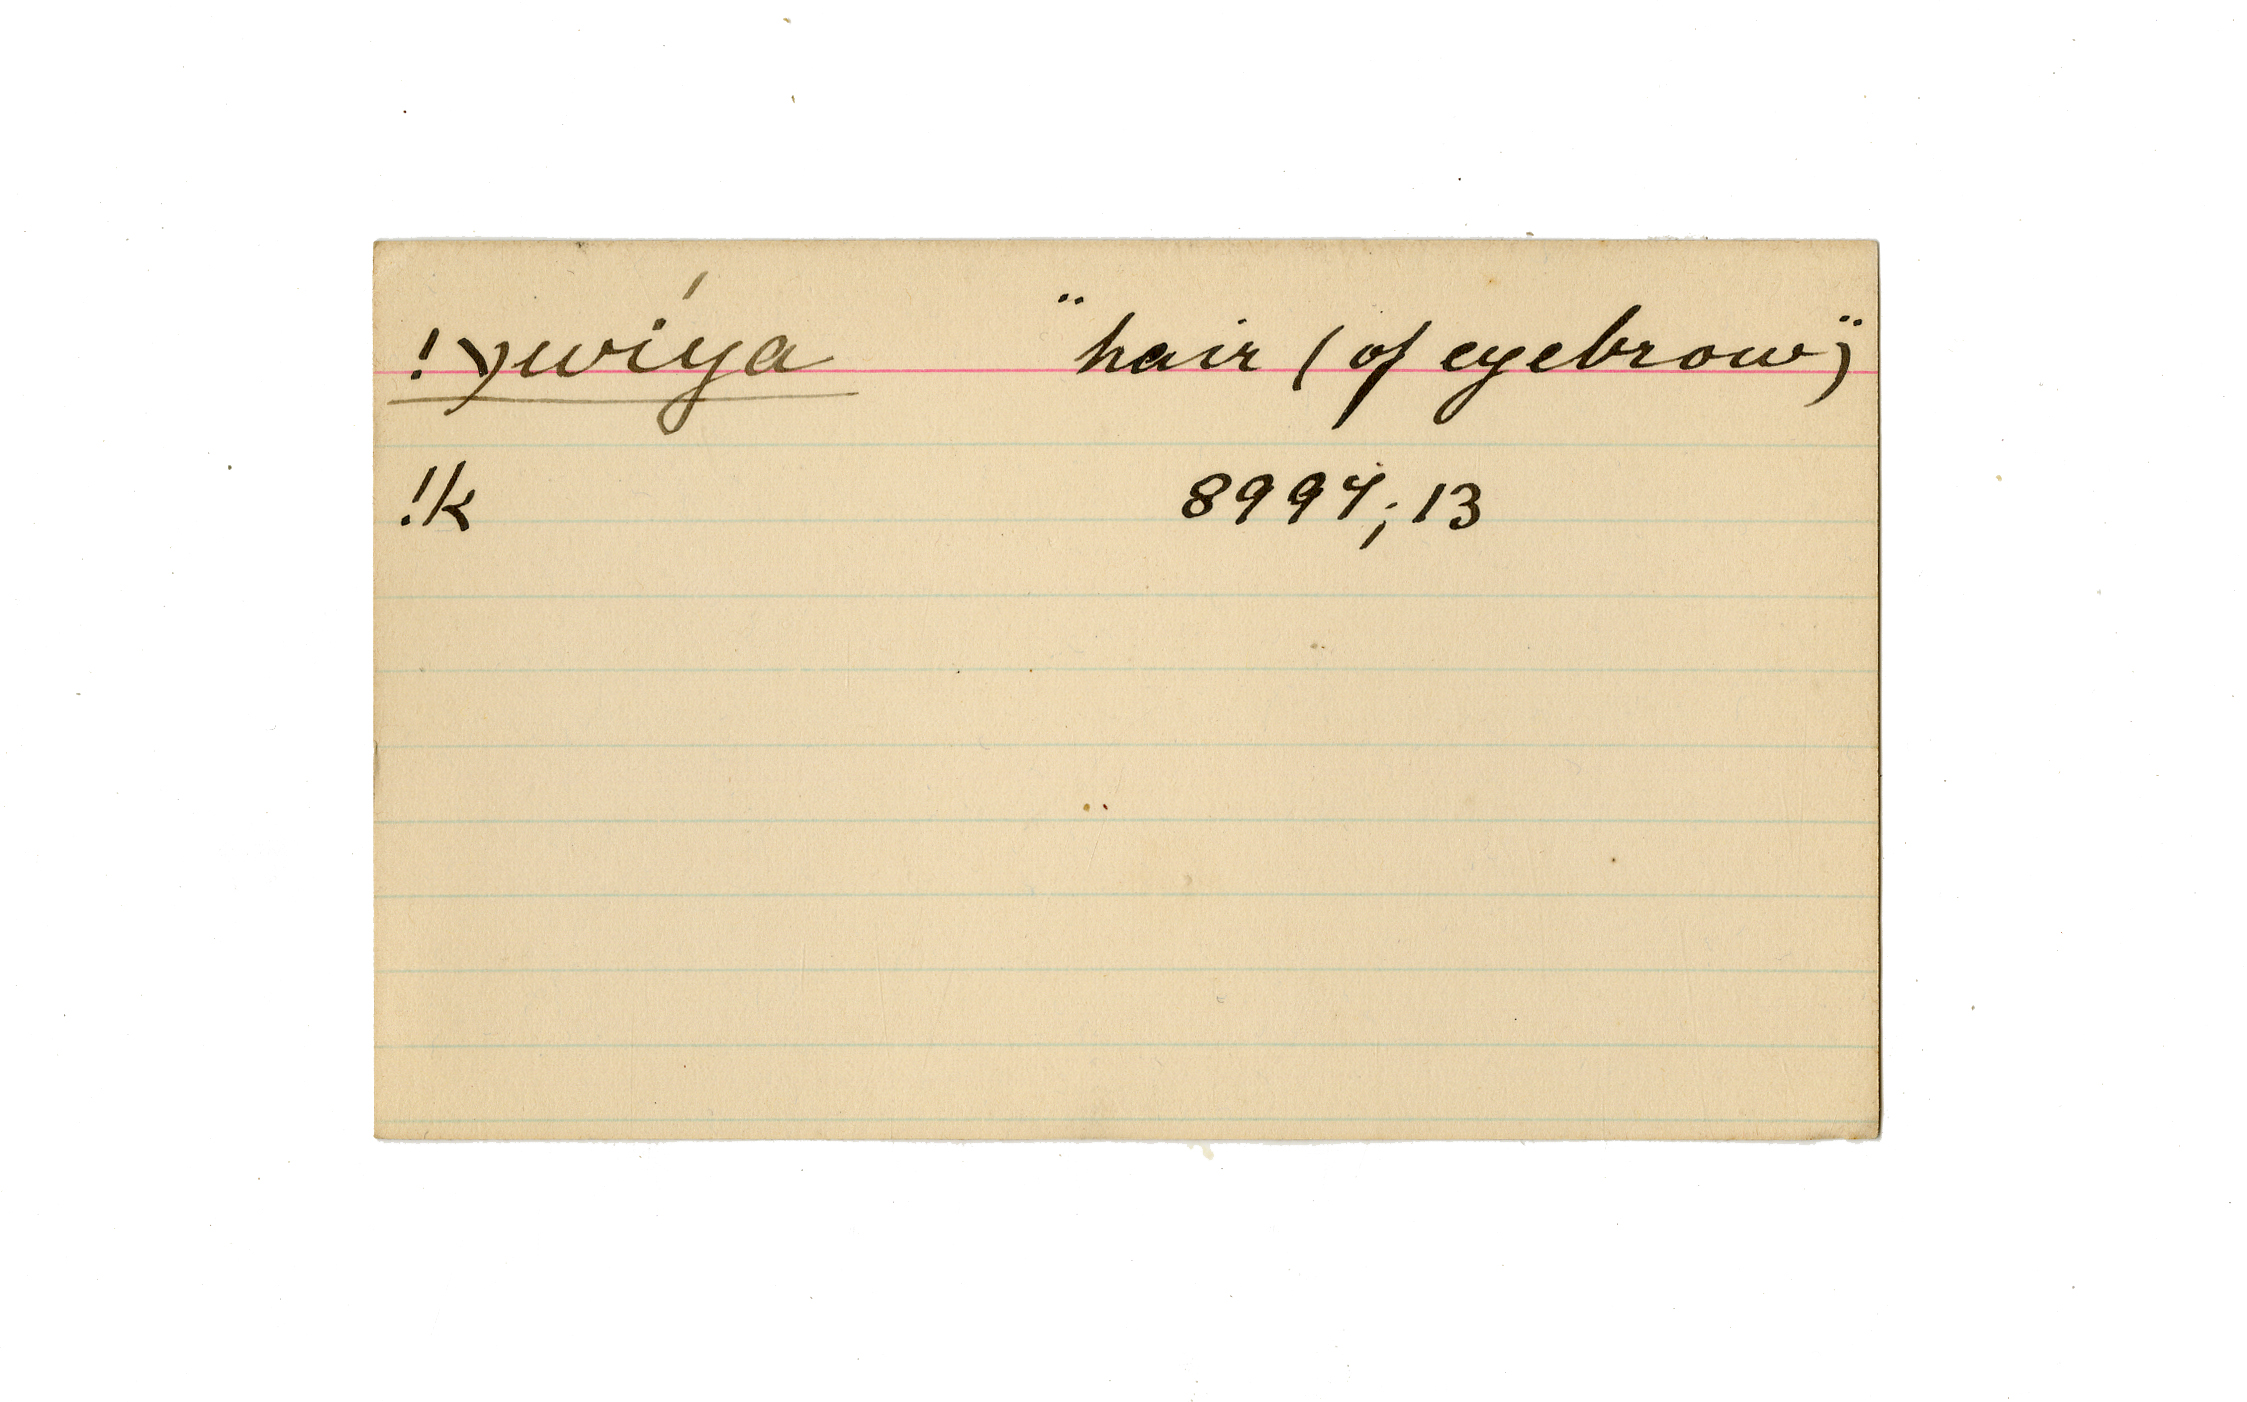 !χwíya "hair (of eyebrow)"
!k 8994; 13